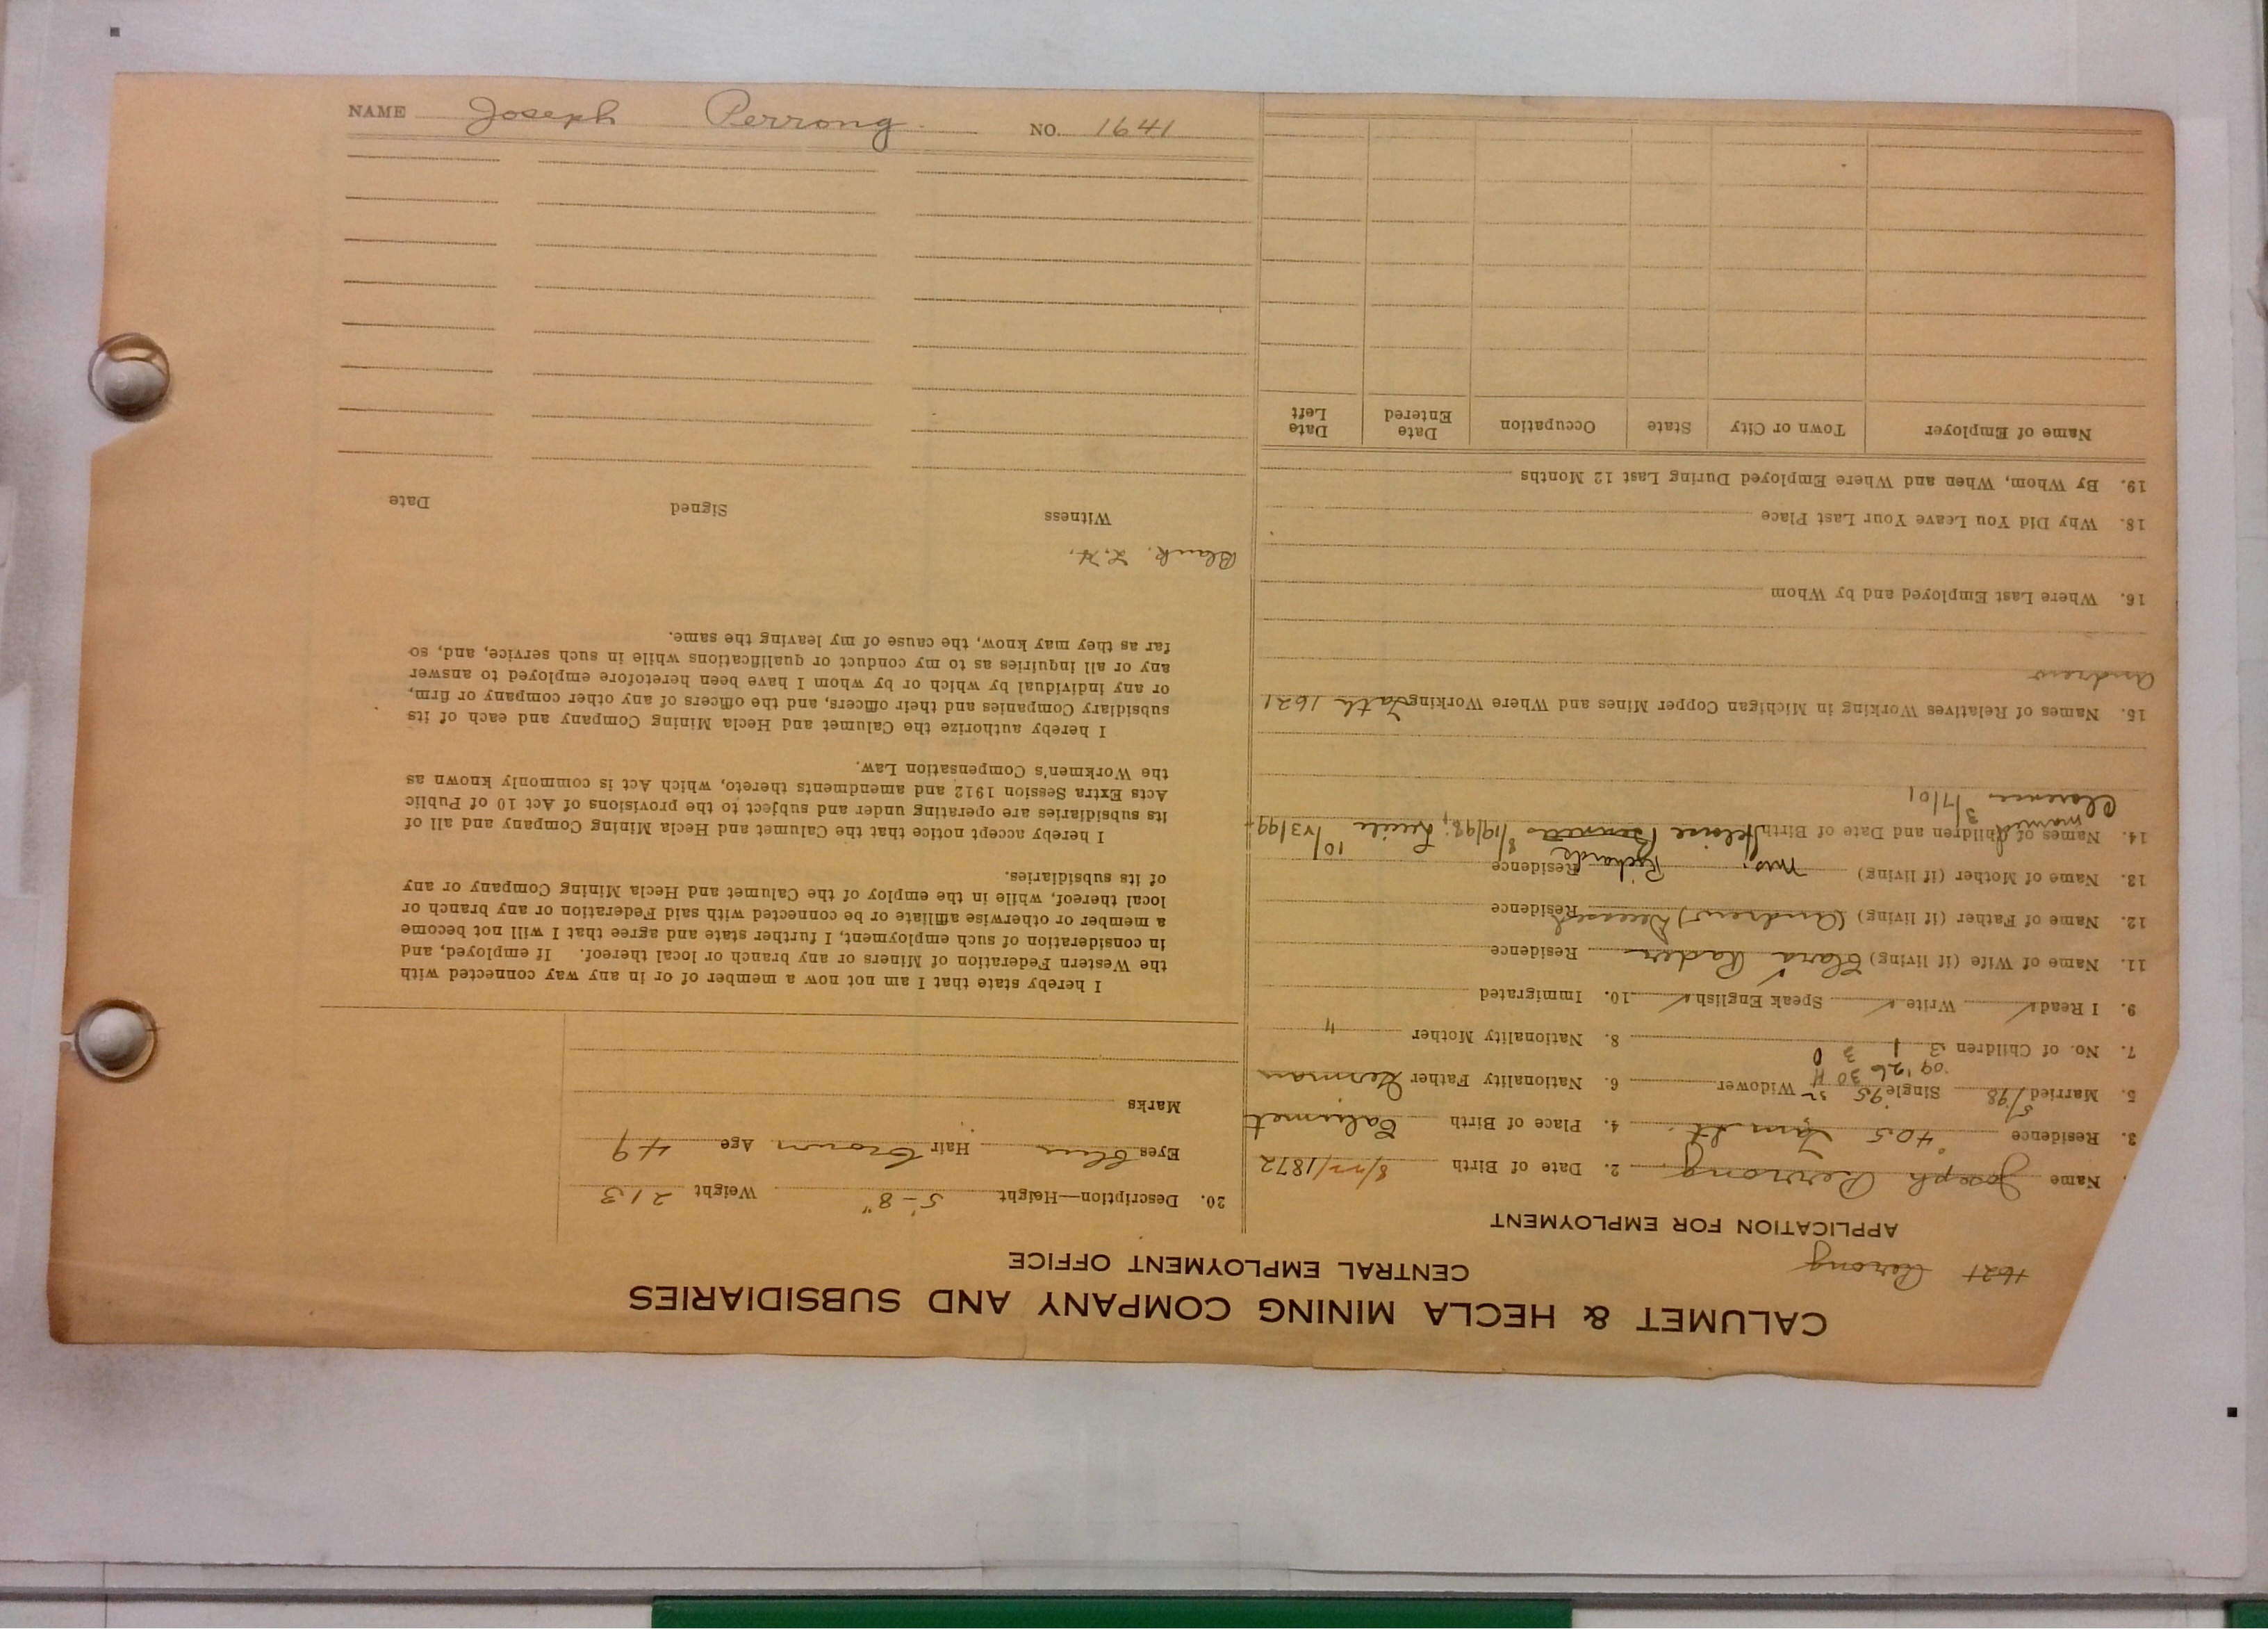 NAME Joseph Perrong NO. 1641
CALUMET & HECLA MINING COMPANY AND SUBSIDIARIES
CENTRAL EMPLOYMENT OFFICE
1621 Perrong
APPLICATION FOR EMPLOYMENT
Name Joseph Perrong 2. Date of Birth 8/22/1872
3. Residence 405 St. 4. Place of Birth Calumet
5. Married 5/98 Single Widower 6. Nationality Father German
'09 '26
7. No. of Children 3 1 3 0 8. Nationality Mother "
9. I Read ✓ Write ✓ Speak English ✓ 10. Immigrated
11. Name of Wife (if living) Clara Rader Residence
12. Name of Father (if living) (Andrew) Deceased Residence
13. Name of Mother (if living) Mrs. Richards Residence
14. Names of Children and Date of Birth Heloise 8/19/98, Lucile 10/23/99,
married
Clarence 3/7/01
15. Names of Relatives Working in Michigan Copper Mines and Where Working Fath 1621
Andrew
16. Where Last Employed and by Whom
18. Why Did You Leave Your Last Place
19. By Whom, When and Where Employed During Last 12 Months
Name of Employer Town or City State Occupation Date Entered Date Left
20. Description—Height 5'-8" Weight 213
Eyes blue Hair brown Age 49
Marks
I hereby state that I am not now a member of or in any way connected with
the Western Federation of Miners or any branch or local thereof. If employed, and
in consideration of such employment, I further state and agree that I will not become
a member or otherwise affiliate or be connected with said Federation or any branch or
local thereof, while in the employ of the Calumet and Hecla Mining Company or any
of its subsidiaries.
I hereby accept notice that the Calumet and Hecla Mining Company and all of
its subsidiaries are operating under and subject to the provisions of Act 10 of Public
Acts Extra Session 1912 and amendments thereto, which Act is commonly known as
the Workmen's Compensation Law.
I hereby authorize the Calumet and Hecla Mining Company and each of its
subsidiary Companies and their officers, and the officers of any other company or firm,
or any individual by which or by whom I have been heretofore employed to answer
any or all inquiries as to my conduct or qualifications while in such service, and, so
far as they may know, the cause of my leaving the same.
Blank. L.H.
Witness Signed Date